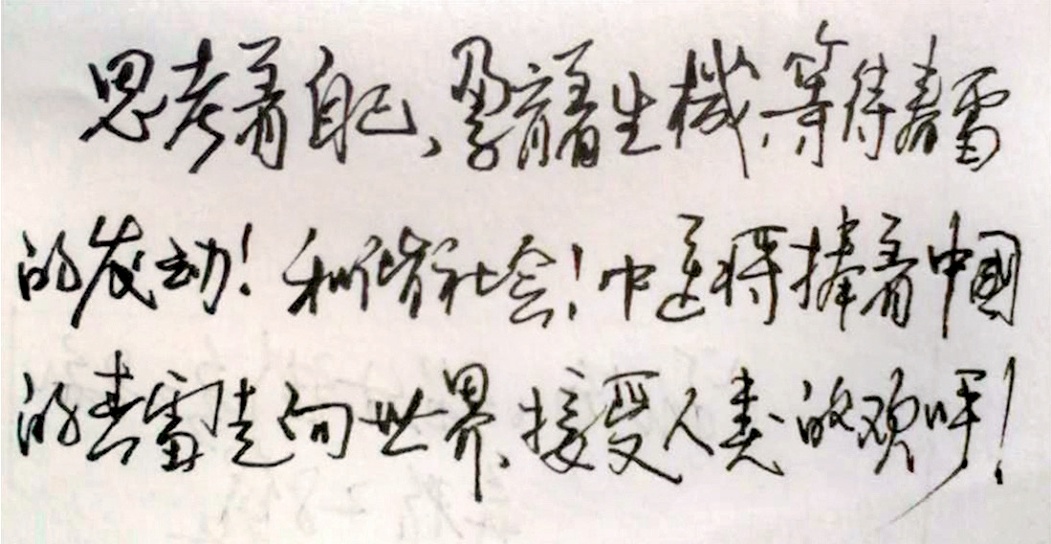 思考着自己、孕育着生機、等待春雷
的发动！和谐社会！中医将捧着中國
的春雷走向世界、接受人类的欢呼！